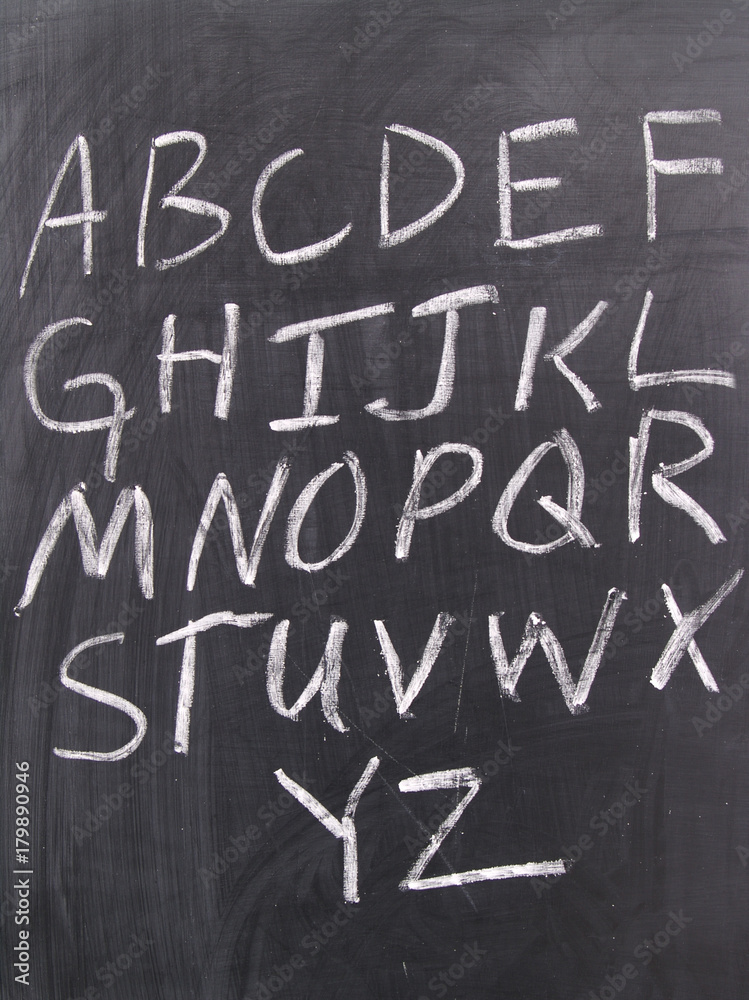 ABCDEF
GHIJKL
MNOPQR
STUVWX
YZ
Adobe Stock | #179890946